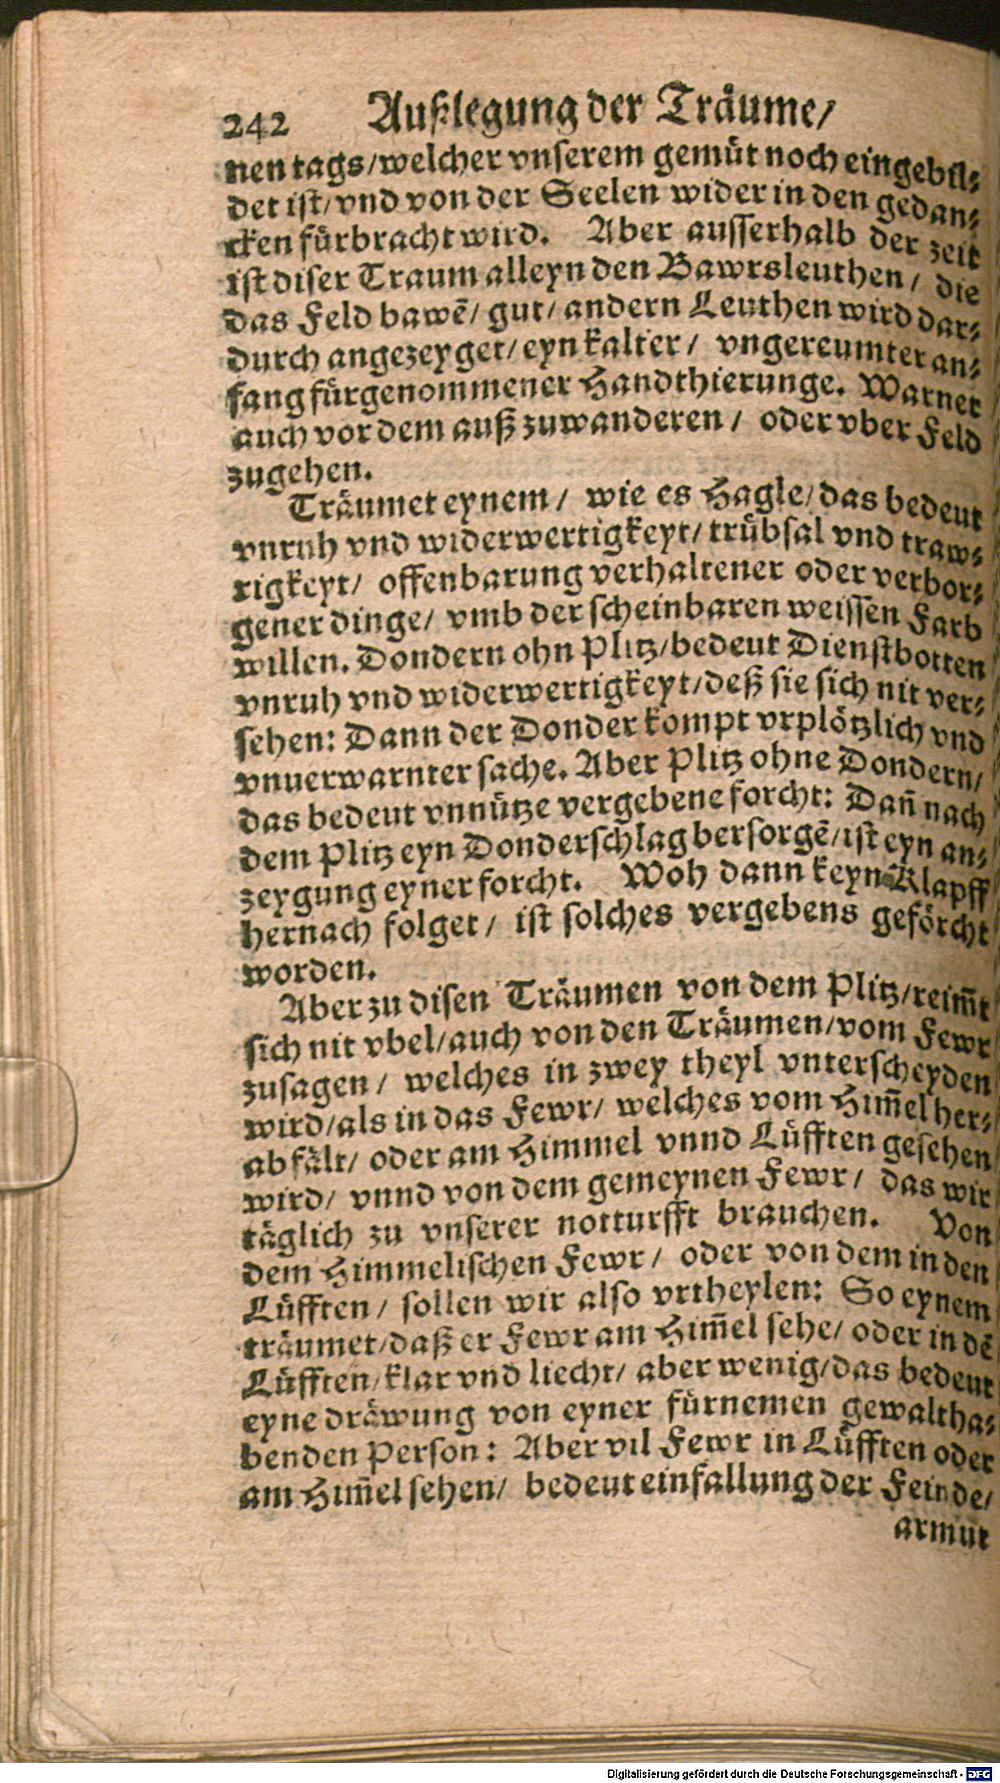 242 Außlegung der Träume/
nen tags/welcher vnserem gemüt noch eingebil⸗
det ist/vnd von der Seelen wider in den gedan⸗
cken fürbracht wird. Aber ausserhalb der zeit
ist diser Traum alleyn den Bawrsleuthen/ die
das Feld bawẽ/ gut/ andern Leuthen wird dar⸗
durch angezeyget/ eyn kalter/ vngereumter an⸗
fang fürgenommener Handthierunge. Warnet
auch vor dem auß zuwanderen/ oder vber Feld
zugehen.
Träumet eynem/ wie es Hagle/das bedeut
vnruh vnd widerwertigkeyt/ trübsal vnd traw⸗
rigkeyt/ offenbarung verhaltener oder verbor⸗
gener dinge/ vmb der scheinbaren weissen Farb
willen. Dondern ohn Plitz/bedeut Dienstbotten
vnruh vnd widerwertigkeyt/deß sie sich nit ver⸗
sehen: Dann der Donder kompt vrplötzlich vnd
vnuerwarnter sache. Aber Plitz ohne Dondern/
das bedeut vnnütze vergebene forcht: Dañ nach
dem Plitz eyn Donderschlag bersorgẽ/ist eyn an⸗
zeygung eyner forcht. Woh dann keyn Klapff
hernach folget/ ist solches vergebens geförcht
worden.
Aber zu disen Träumen von dem Plitz/reim̃t
sich nit vbel/auch von den Träumen/vom Fewr
zusagen/ welches in zwey theyl vnterscheyden
wird/als in das Fewr/ welches vom Him̃el her⸗
ab fält/ oder am Himmel vnnd Lüfften gesehen
wird/ vnnd von dem gemeynen Fewr/ das wir
täglich zu vnserer notturfft brauchen. Von
dem Himmelischen Fewr/ oder von dem in den
Lüfften/ sollen wir also vrtheylen: So eynem
träumet/daß er Fewr am Him̃el sehe/ oder in dẽ
Lüfften/klar vnd liecht/ aber wenig/das bedeut
eyne dräwung von eyner fürnemen gewaltha⸗
benden Person: Aber vil Fewr in Lüfften oder
am Him̃el sehen/ bedeut einfallung der Feinde/
armut
Digitalisierung gefördert durch die Deutsche Forschungsgemeinschaft - DFG